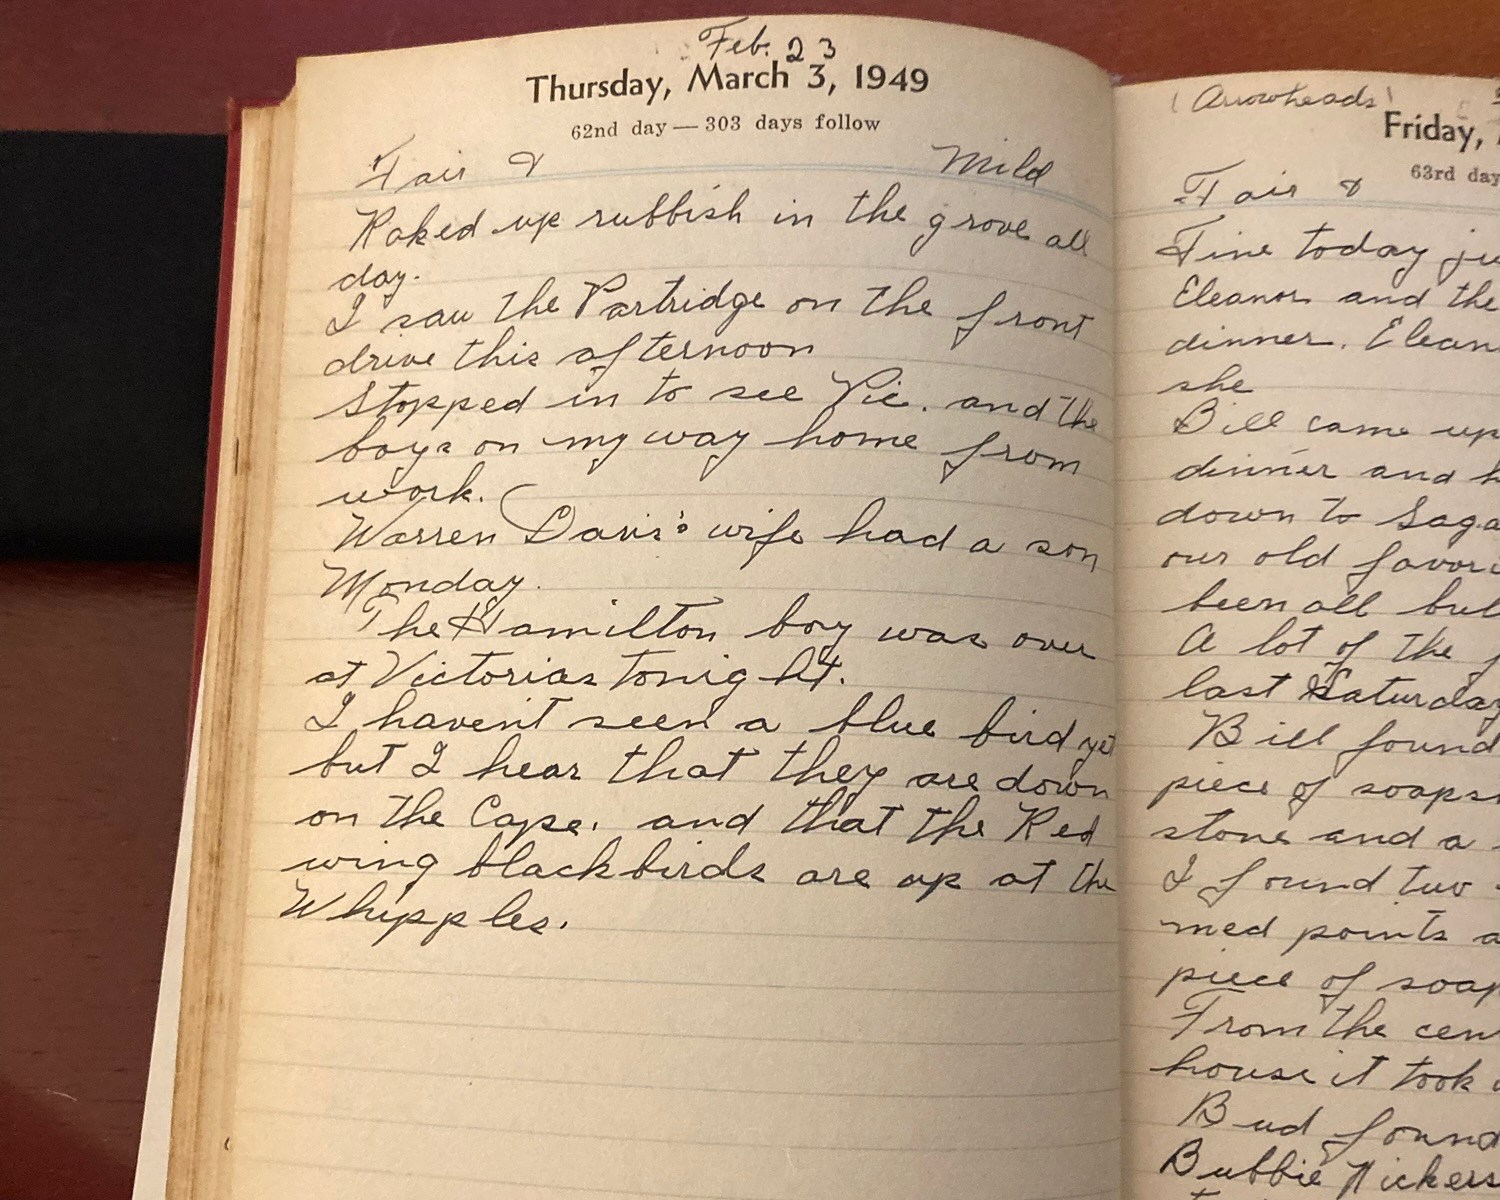 Feb. 23
Thursday, March 3, 1949
62nd day — 303 days follow
Fair & Mild
Raked up rubbish in the grove all
day.
I saw the Partridge on the front
drive this afternoon
Stopped in to see Vic. and the
boys on my way home from
work.
Warren Davis's wife had a son
Monday.
The Hamilton boy was over
at Victorias tonight.
I havent seen a blue bird yet
but I hear that they are down
on the Cape. and that the Red
wing blackbirds are up at the
Whipples.
(Arrowheads)
Friday,
63rd day
Fair &
Fine today
Eleanor and the
dinner. Elean
she
Bill came up
dinner and h
down to Saga
our old favori
been all bul
A lot of the
last Saturday
Bill found
piece of soaps
stone and a
I found two
med points a
piece of soap
From the cen
house it took
Bud found
Bubbie Nickers